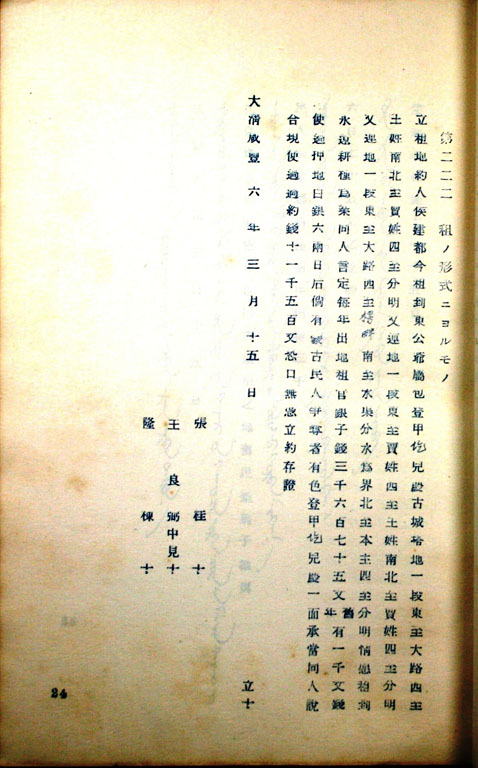 第二二二 租ノ形式ニヨルモノ
立租地約人侯建都今租到東公爺屬包登甲化兒殿古城塔地一段東主大路四主
土姓南北主賈姓四主分明又連地一段東主賈姓四主土姓南北主賈姓四主分明
又連地一段東主大路四主 南主水渠分水為界北主本主四主分明情愿租到
永遠耕種為業同人言定每年出地租官銀子錢三千六百七十五文舊年有一千文錢
使過押地白銀六兩日后倘有蒙古民人爭奪者有色登甲化兒殿一面承當同人說
合現使過過約錢十一千五百文恐口無憑立約存證
大清咸豐 六 年 三 月 十五 日 立十
張 桂 十
王 良 弼中見十
隆 棟 十
24